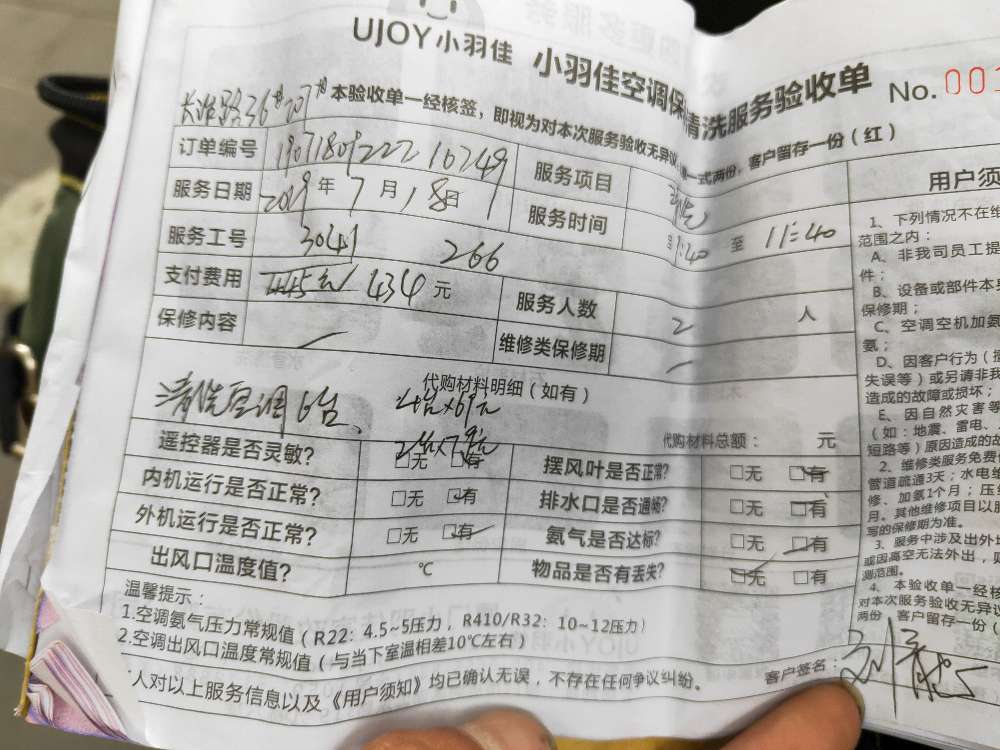 UJOY小羽佳 小羽佳空调保 清洗服务验收单 No. 001
长淮路36#207#
本验收单一经核签，即视为对本次服务验收无异议 一式两份，客户留存一份（红）
订单编号 19071809222 10249 服务项目
服务日期 2019年7月18日 服务时间 :40 至 11:40
服务工号 3041 266
支付费用 445元 434元 服务人数 2 人
保修内容 / 维修类保修期 /
代购材料明细（如有）
清洗空调6台、 4台×69元
2台×79元
代购材料总额： 元
遥控器是否灵敏？ □无 □有 摆风叶是否正常？ □无 □有
内机运行是否正常？ □无 □有 排水口是否通畅？ □无 □有
外机运行是否正常？ □无 □有 氨气是否达标？ □无 □有
出风口温度值？ ℃ 物品是否有丢失？ □无 □有
温馨提示：
1.空调氨气压力常规值（R22：4.5~5压力，R410/R32：10~12压力）
2.空调出风口温度常规值（与当下室温相差10℃左右）
人对以上服务信息以及《用户须知》均已确认无误，不存在任何争议纠纷。
客户签名：
用户须
1、下列情况不在维
范围之内：
A、非我司员工提
件；
B、设备或部件本身
保修期；
C、空调空机加氨
氨；
D、因客户行为（操
失误等）或另请非我
造成的故障或损坏；
E、因自然灾害等
（如：地震、雷电、
短路等）原因造成的故
2、维修类服务免费
管道疏通3天；水电维
修、加氨1个月；压
月、其他维修项目以
写的保修期为准。
3、服务中涉及出外
或因高空无法外出，
测范围。
4、本验收单一经核
对本次服务验收无异议
两份，客户留存一份（